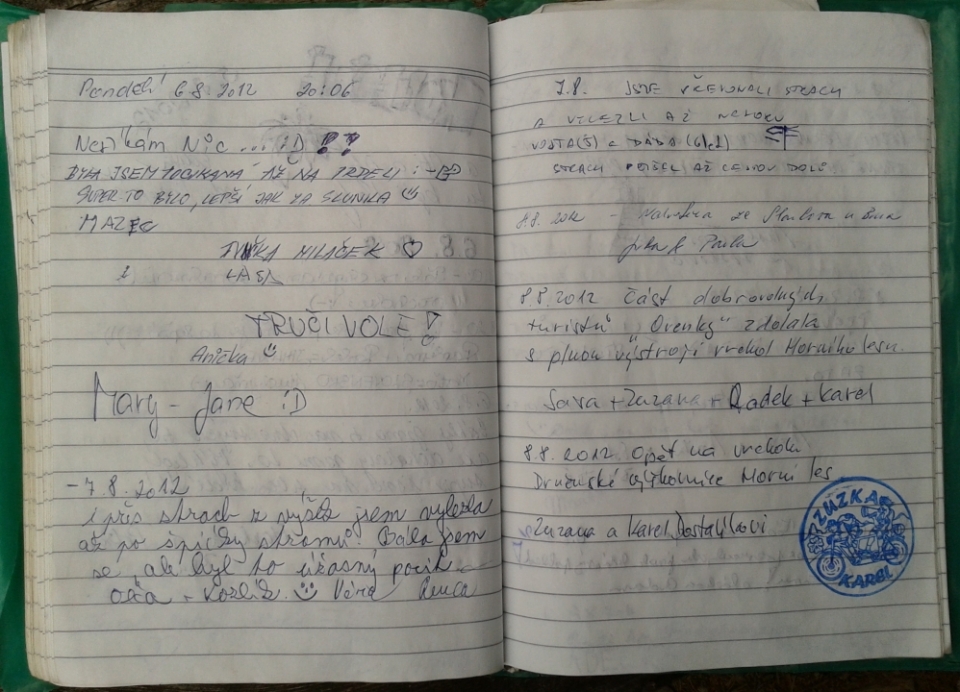 Pondělí 6.8.2012 20:06
Neříkám Nic ... :D !?
BYLA JSEM AŽ NA PRDELI :-D
SUPER TO BYLO, LEPŠÍ JAK ZA SLUNKA ☺
MAZEC
MILÁČEK ♡
TRUČI VOLE!
Anička ☺
Mary - Jane :D
- 7.8.2012
i přes strach z výšek jsem vylezla
až po špičky stromů. Bála jsem
se, ale byl to úžasný pocit
☺ Věra
7.8. JSME PŘEKONALI STRACH
A VYLEZLI AŽ NAHORU
STRACH AŽ CESTOU DOLŮ
8.8.2012 - ze Slavkova u Brna
8.8.2012 Část dobrovolných
turistů "Orenky" zdolala
s plnou výstrojí vrchol Horního lesa.
Sára + Zuzana + Radek + Karel
8.8.2012 Opět na vrcholu
Horní les
Zuzana a Karel Dostálíkovi
ZUZKA
KAREL